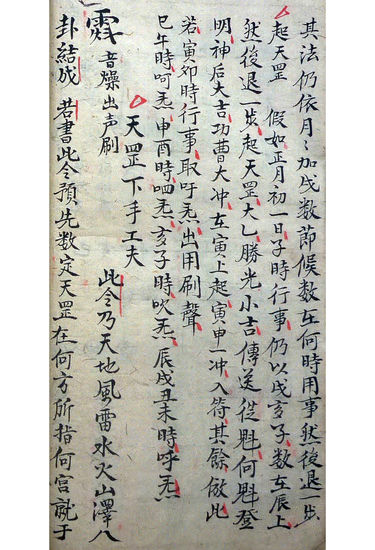 其法仍依月月加戌数節候数在何時用事然後退一步
起天罡 假如正月初一日子時行事仍以戌亥子数在辰上
然後退一步起天罡大乙勝光小吉傳送從魁何魁登
明神后大吉功曹大冲在寅上起寅申一冲入符其餘倣此
若寅卯時行事取吁炁出用刷聲
巳午時呵炁申酉時呬炁亥子時吹炁辰戌丑未時呼炁
天罡一下手工夫
音燥出声刷 此令乃天地風雷水火山澤八
卦結成 若書此令預先数定天罡在何方所指何宮就于